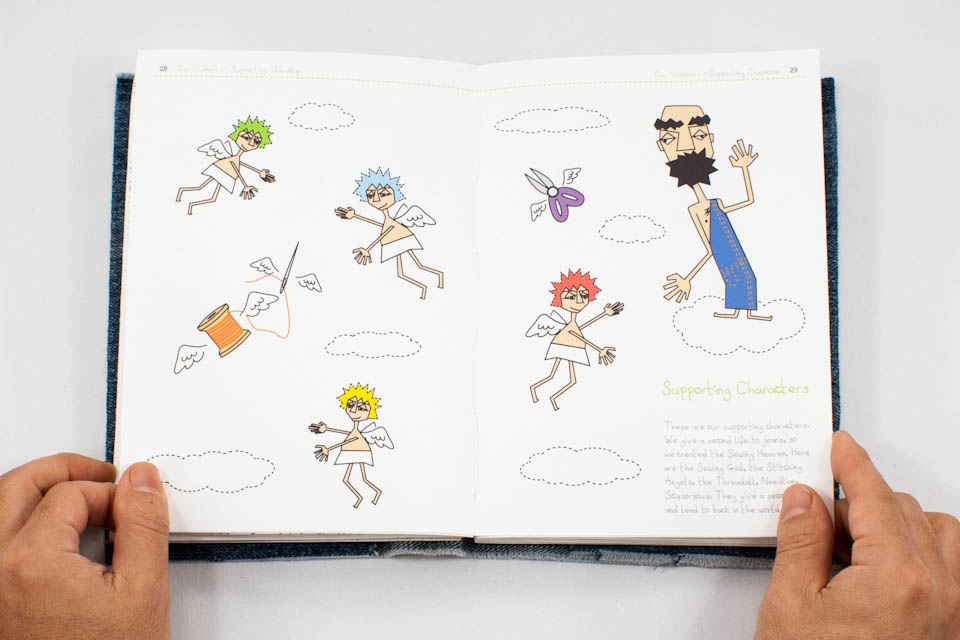 28 Our Universe / Supporting Character
Our Universe / Supporting Character 29
Supporting Characters
These are our supporting characters.
We give a second life to jeans, so
we created the Sewing Heaven. Here
are the Sewing God, the Stitching
Angels, the Threadall, Needline,
Scissorsous. They give a
and lead to back in the world